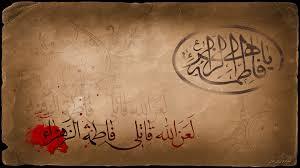 یا فاطمة الزهراء
لعن الله قاتلی فاطمة الزهراء